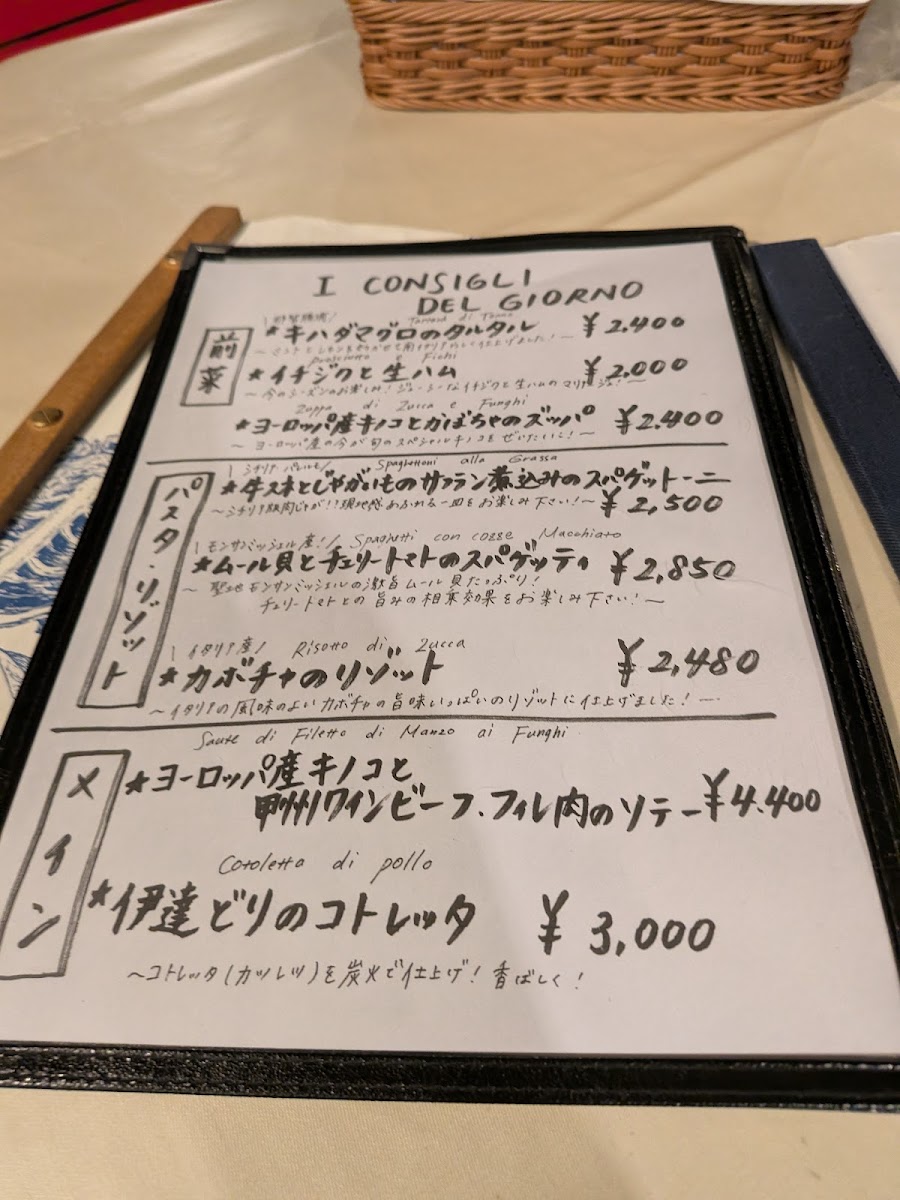 I CONSIGLI
DEL GIORNO
前菜
Tartara di Tonno
★キハダマグロのタルタル ¥2,400
Prosciutto e Fichi
★イチジクと生ハム ¥2,000
～今のシーズンのお楽しみ!ジューシーなイチジクと生ハムのマリアージュ!～
Zuppa di Zucca e Funghi
★ヨーロッパ産キノコとかぼちゃのズッパ ¥2,400
～ヨーロッパ産の今が旬のスペシャルキノコをぜいたくに!～
パスタ・リゾット
\シチリア・パレルモ/ Spaghettoni alla Grassa
★牛スネとじゃがいものサフラン煮込みのスパゲットーニ
～シチリア版肉じゃが!?現地感あふれる一皿をお楽しみ下さい!～ ¥2,500
\モンサンミッシェル産!/ Spaghetti con cozze Macchiato
★ムール貝とチェリートマトのスパゲッティ ¥2,850
～聖地モンサンミッシェルの激旨ムール貝たっぷり!
チェリートマトとの旨みの相乗効果をお楽しみ下さい!～
\イタリア産/ Risotto di Zucca
★カボチャのリゾット ¥2,480
～イタリアの風味のよいカボチャの旨味いっぱいのリゾットに仕上げました!～
メイン
Saute di Filetto di Manzo ai Funghi
★ヨーロッパ産キノコと
甲州ワインビーフ・フィレ肉のソテー ¥4,400
Cotoletta di pollo
★伊達どりのコトレッタ ¥3,000
～コトレッタ(カツレツ)を炭火で仕上げ!香ばしく!